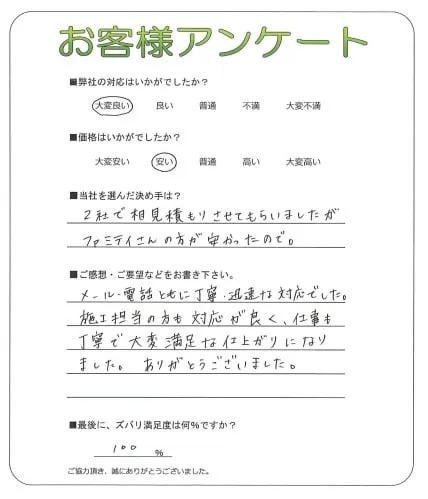 お客様アンケート
■弊社の対応はいかがでしたか？
大変良い 良い 普通 不満 大変不満
■価格はいかがでしたか？
大変安い 安い 普通 高い 大変高い
■当社を選んだ決め手は？
2社で相見積もりさせてもらいましたが
ファミテイさんの方が安かったので。
■ご感想・ご要望などをお書き下さい。
メール・電話ともに丁寧・迅速な対応でした。
施工担当の方も対応が良く、仕事も
丁寧で大変満足な仕上がりになり
ました。ありがとうございました。
■最後に、ズバリ満足度は何％ですか？
100 %
ご協力頂き、誠にありがとうございました。